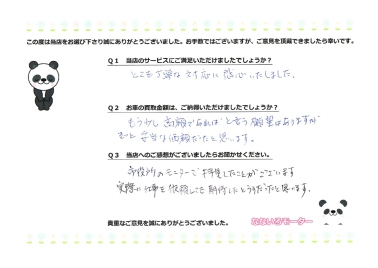 この度は当店をお選び下さり誠にありがとうございました。お手数ではございますが、ご意見を頂戴できましたら幸いです。
Q1 当店のサービスにご満足いただけましたでしょうか?
とても丁寧な対応に感心いたしました。
Q2 お車の買取金額は、ご納得いただけましたでしょうか?
もう少し高額であればと言う願望はありますが
もっと妥当な価額だったと思います。
Q3 当店へのご感想がございましたらお聞かせください。
市役所のモニターで拝見したことがございます
実際に仕事を依頼しても期待にこたえて だったと思います。
貴重なご意見を誠にありがとうございました。
なないろモーター